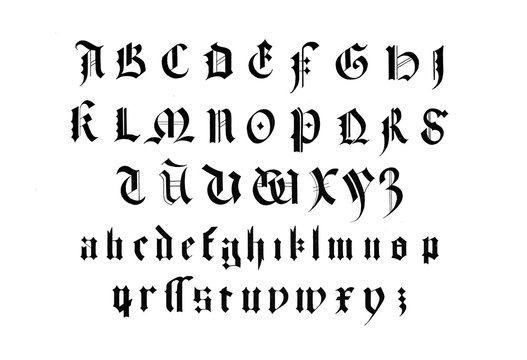 A B C D E F G H I
K L M N O P Q R S
T Ũ V W X Y Z
a b c d e f g h i k l m n o p
q r ſſ s t u v w x y z